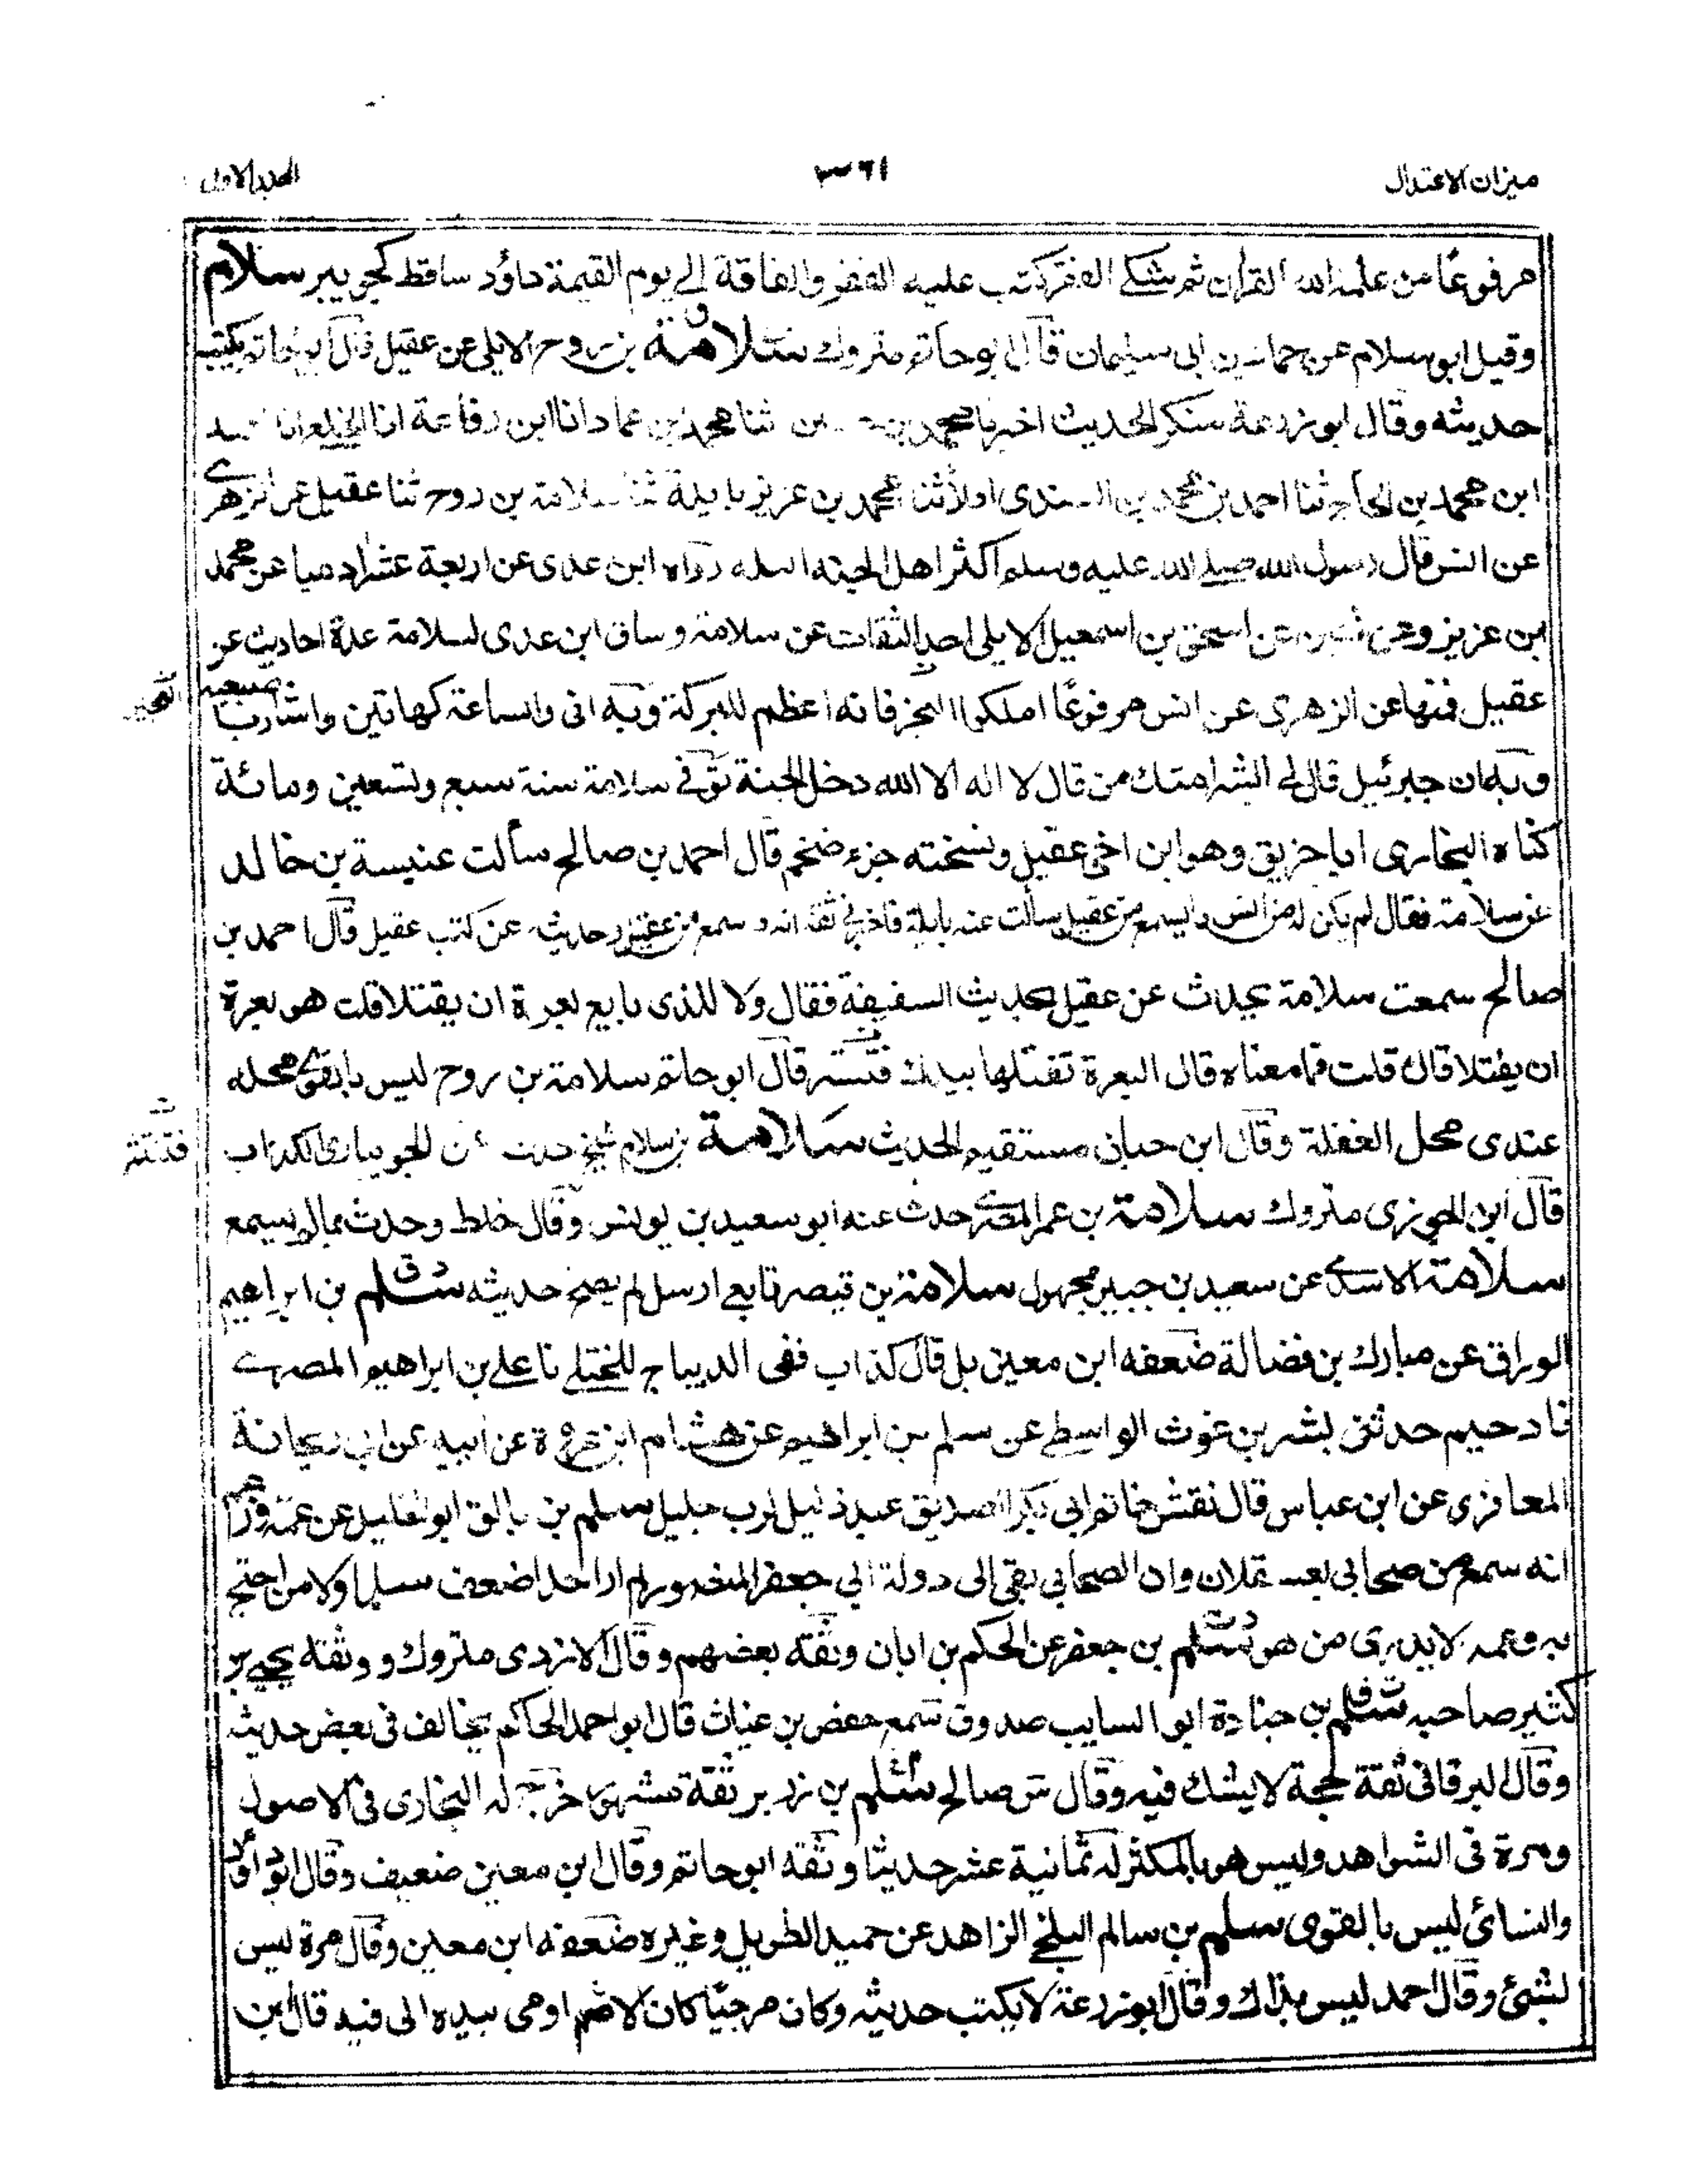 ميزان الاعتدال ٣٦١ المجلد الاول
مرفوعًا من علمه الله القرأن ثم شكى الفقر كتب عليه الفقر والفاقة الى يوم القيمة داؤد ساقط كجويبر سلام
وقيل ابو سلام عن حماد بن ابى سليمان قال ابو حاتم متروك سلامة ق بن روح الايلى عن عقيل قال ابو حاتم يكتب
حديثه وقال ابو زرعة منكر الحديث اخبرنا محمد بن ثنا محمد بن عماد انا ابن رفاعة انا الخلعى انا
ابن محمد بن الحاج ثنا احمد بن محمد بن السندى املأ ثنا محمد بن عزيز بايلة ثنا سلامة بن روح ثنا عقيل عن الزهرى
عن انس قال رسول الله صلى الله عليه وسلم اكثر اهل الجنة البله رواه ابن عدى عن اربعة عشر ادميا عن محمد
بن عزيز وعن عن اسحق بن اسمعيل الايلى احد الثقات عن سلامة وساق ابن عدى لسلامة عدة احاديث عن
عقيل فمنها عن الزهرى عن انس مرفوعًا املكوا العجين فانه اعظم للبركة وبه انى والساعة كهاتين واشار باصبعيه
وبه ان جبرئيل قال لى بشر امتك من قال لا اله الا الله دخل الجنة توفى سلامة سنة سبع وتسعين ومائة
كناه البخارى ابا خربق وهو ابن اخى عقيل ونسخته جزء ضخم قال احمد بن صالح سألت عنبسة بن خالد
عن سلامة فقال لم يكن له من السن ما يسمع من عقيل سألت عنه بايلة فاخبرنى ثقة انه سمع من عقيل وحديثه عن كتب عقيل قال احمد بن
صالح سمعت سلامة يحدث عن عقيل بحديث السقيفة فقال ولا للذى بايع بعرة ان يقتلا قلت هو بعرة
ان يقتلا قال قلت فما معناه قال البعرة تفتلها بيدك فتنتثر قال ابو حاتم سلامة بن روح ليس بالقوى محله
عندى محل الغفلة وقال ابن حبان مستقيم الحديث سلامة بن سلام شيخ حدث عن الجويبارى الكذاب
قال ابن الجوزى متروك سلامة بن عمر المصرى حدث عنه ابو سعيد بن يونس وقال خلط وحدث بما لم يسمع
سلامة الاسدى عن سعيد بن جبير مجهول سلامة بن قيصر تابعى ارسل لم يصح حديثه سلم دق بن ابراهيم
الوراق عن مبارك بن فضالة ضعفه ابن معين بل قال كذاب ففى الديباج للختلى نا على بن ابراهيم المصرى
نا دحيم حدثنى بشر بن غوث الواسطى عن سلم بن ابراهيم عن هشام ابن عروة عن ابيه عن ابى ريحانة
المعافرى عن ابن عباس قال نقش خاتم ابى بكر الصديق عبد ذليل لرب جليل سلم بن بالق ابو عن عمه
انه سمع من صحابى بعسقلان وان الصحابى بقى الى دولة ابى جعفر المنصور لم ار احدا ضعف سلما ولا من احتج
به وعمه لا يدرى من هو سلم دت بن جعفر عن الحكم بن ابان وثقه بعضهم وقال الازدى متروك ووثقه يحيى بن
كثير صاحبه سلم ت ق بن جنادة ابو السايب صدوق سمع حفص بن غياث قال ابو احمد الحاكم يخالف فى بعض حديثه
وقال البرقانى ثقة حجة لا يشك فيه وقال س صالح سلم بن زرير ثقة مشهور خرج له البخارى فى الاصول
ومرة فى الشواهد وليس هو بالمكثر له ثمانية عشر حديثا وثقه ابو حاتم وقال ابن معين ضعيف وقال ابو داؤد
والنسائى ليس بالقوى سلم بن سالم البلخى الزاهد عن حميد الطويل وغيره ضعفه ابن معين وقال مرة ليس
بشئ وقال احمد ليس بذاك وقال ابو زرعة لا يكتب حديثه وكان مرجيًا كان لا ثم اومى بيده الى فيه قال ابن
العجين
فتنتثر